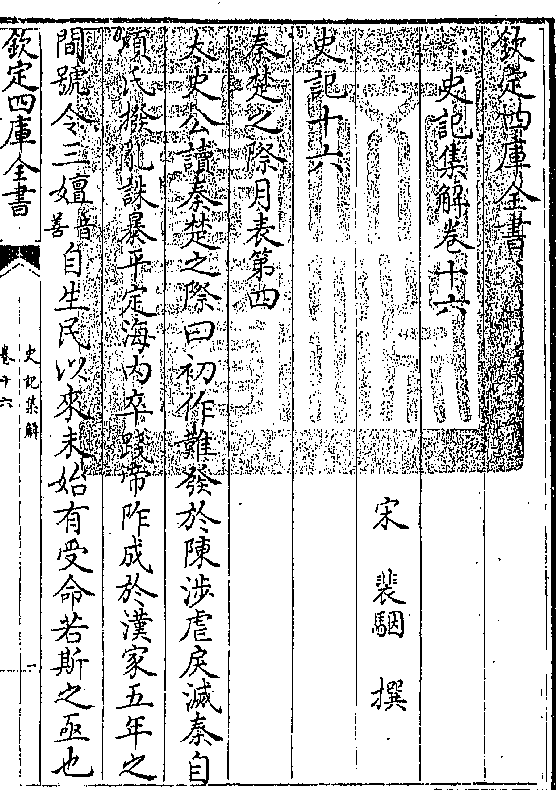 欽定四庫全書
史記集解卷十六
宋 裴駰 撰
史記十六
秦楚之際月表第四
太史公讀秦楚之際曰初作難發於陳涉虐戾滅秦自
項氏撥亂誅暴平定海内卒踐帝阼成於漢家五年之
間號令三嬗音善自生民以來未始有受命若斯之亟也
欽定四庫全書
史記集解
卷十六
一